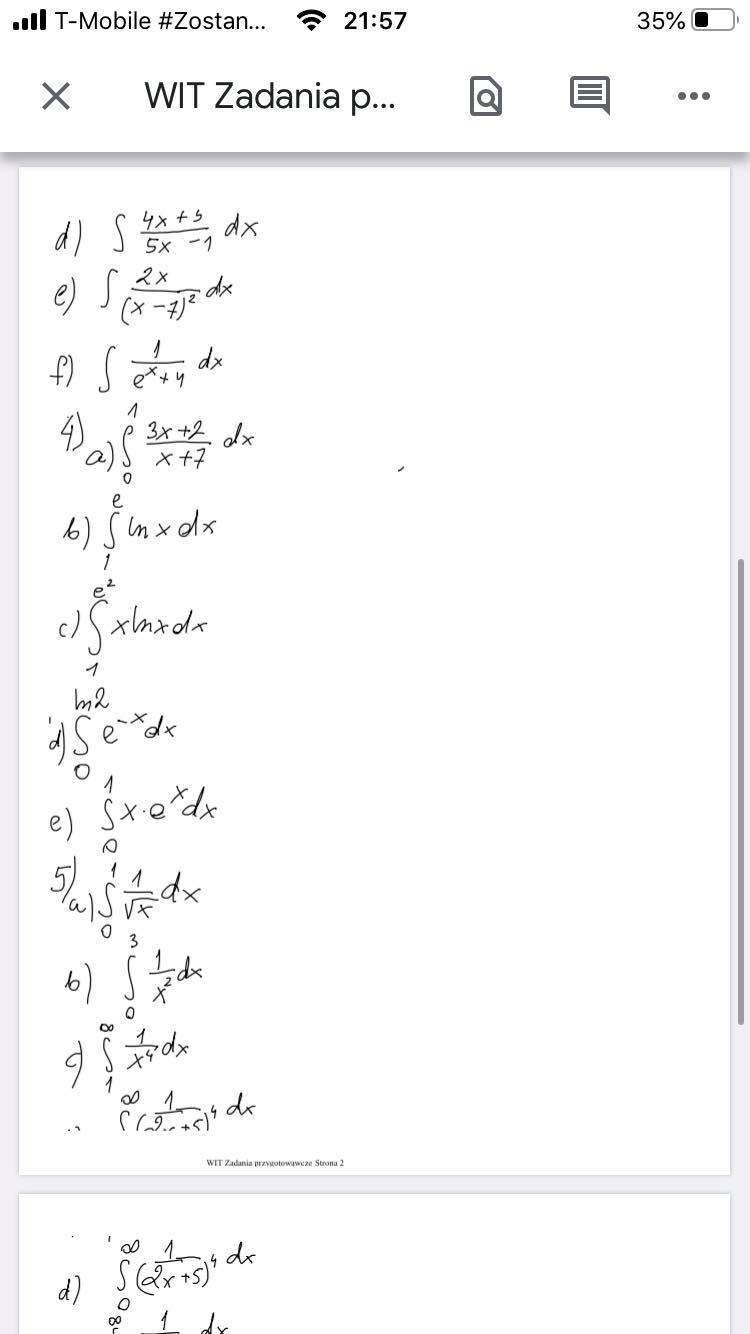 T-Mobile #Zostan... 21:57 35%
WIT Zadania p...
d) ∫ (4x+5)/(5x-1) dx
e) ∫ 2x/(x-7)² dx
f) ∫ 1/(eˣ+4) dx
4) a) ∫₀¹ (3x+2)/(x+7) dx
b) ∫₁ᵉ ln x dx
c) ∫₁^(e²) x ln x dx
d) ∫₀^(ln2) e⁻ˣ dx
e) ∫₀¹ x·eˣ dx
5) a) ∫₀¹ 1/√x dx
b) ∫₀³ 1/x² dx
c) ∫₁^∞ 1/x⁴ dx
∫^∞ 1/(2x+5)⁴ dx
WIT Zadania przygotowawcze Strona 2
d) ∫₀^∞ 1/(2x+5)⁴ dx
∞ 1 dx